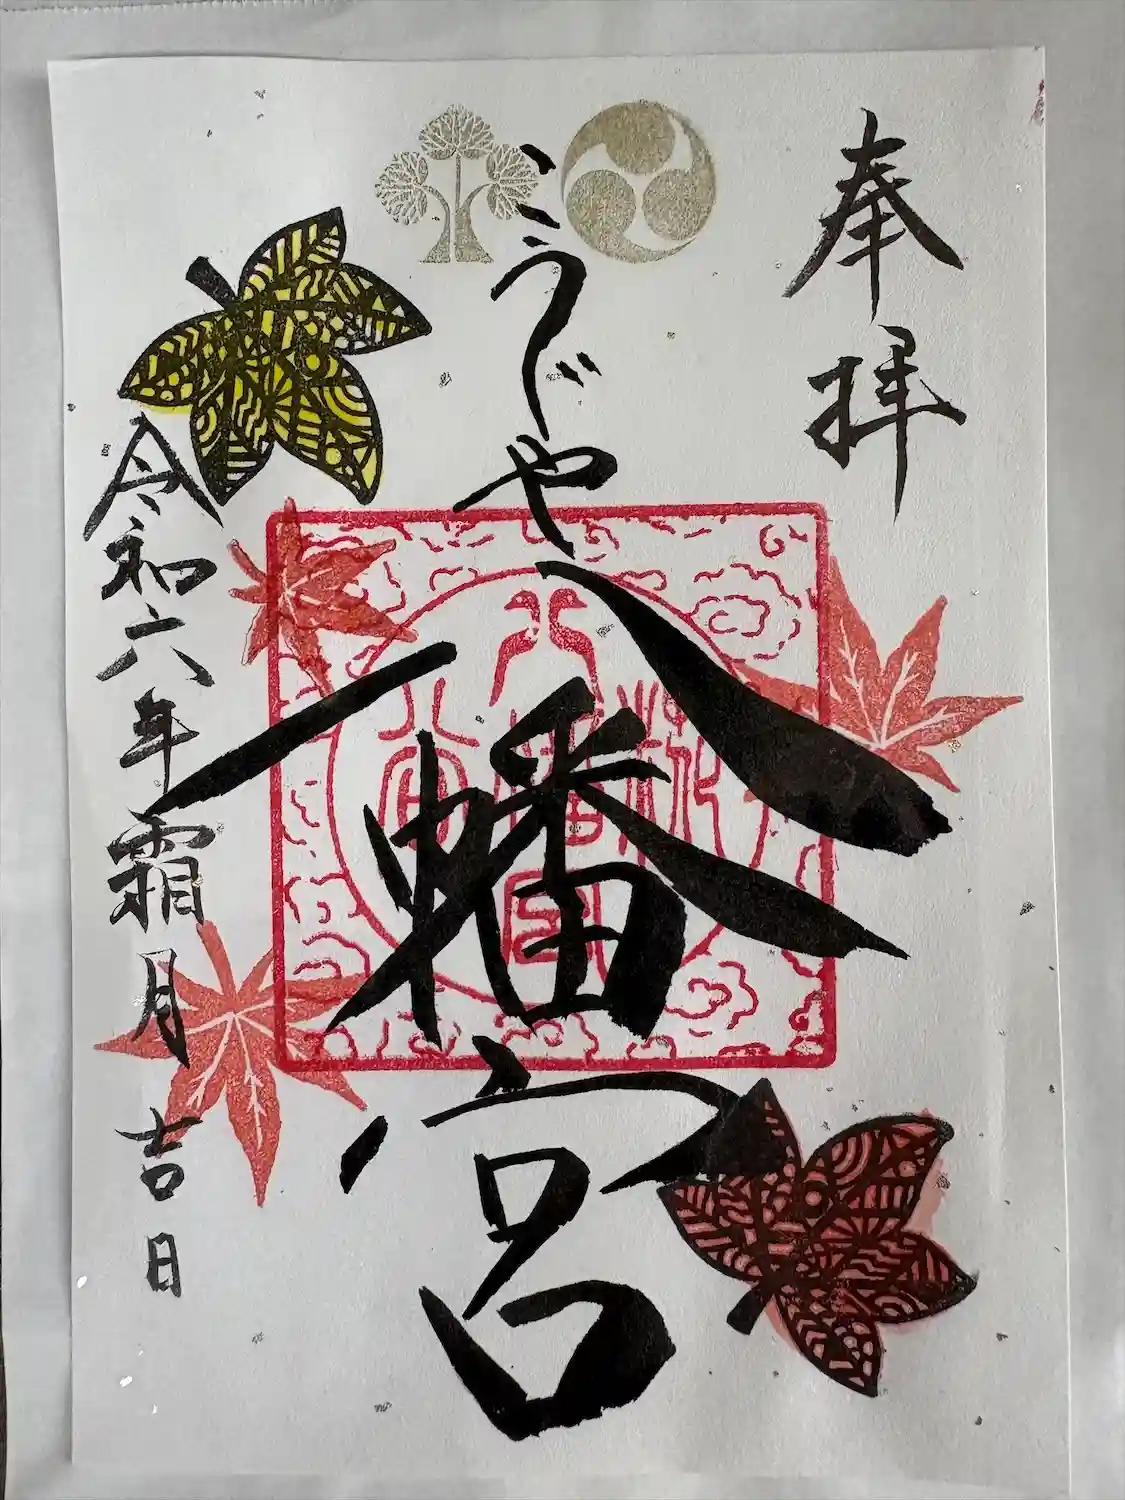 奉拝
こうじや八幡宮
令和六年霜月吉日